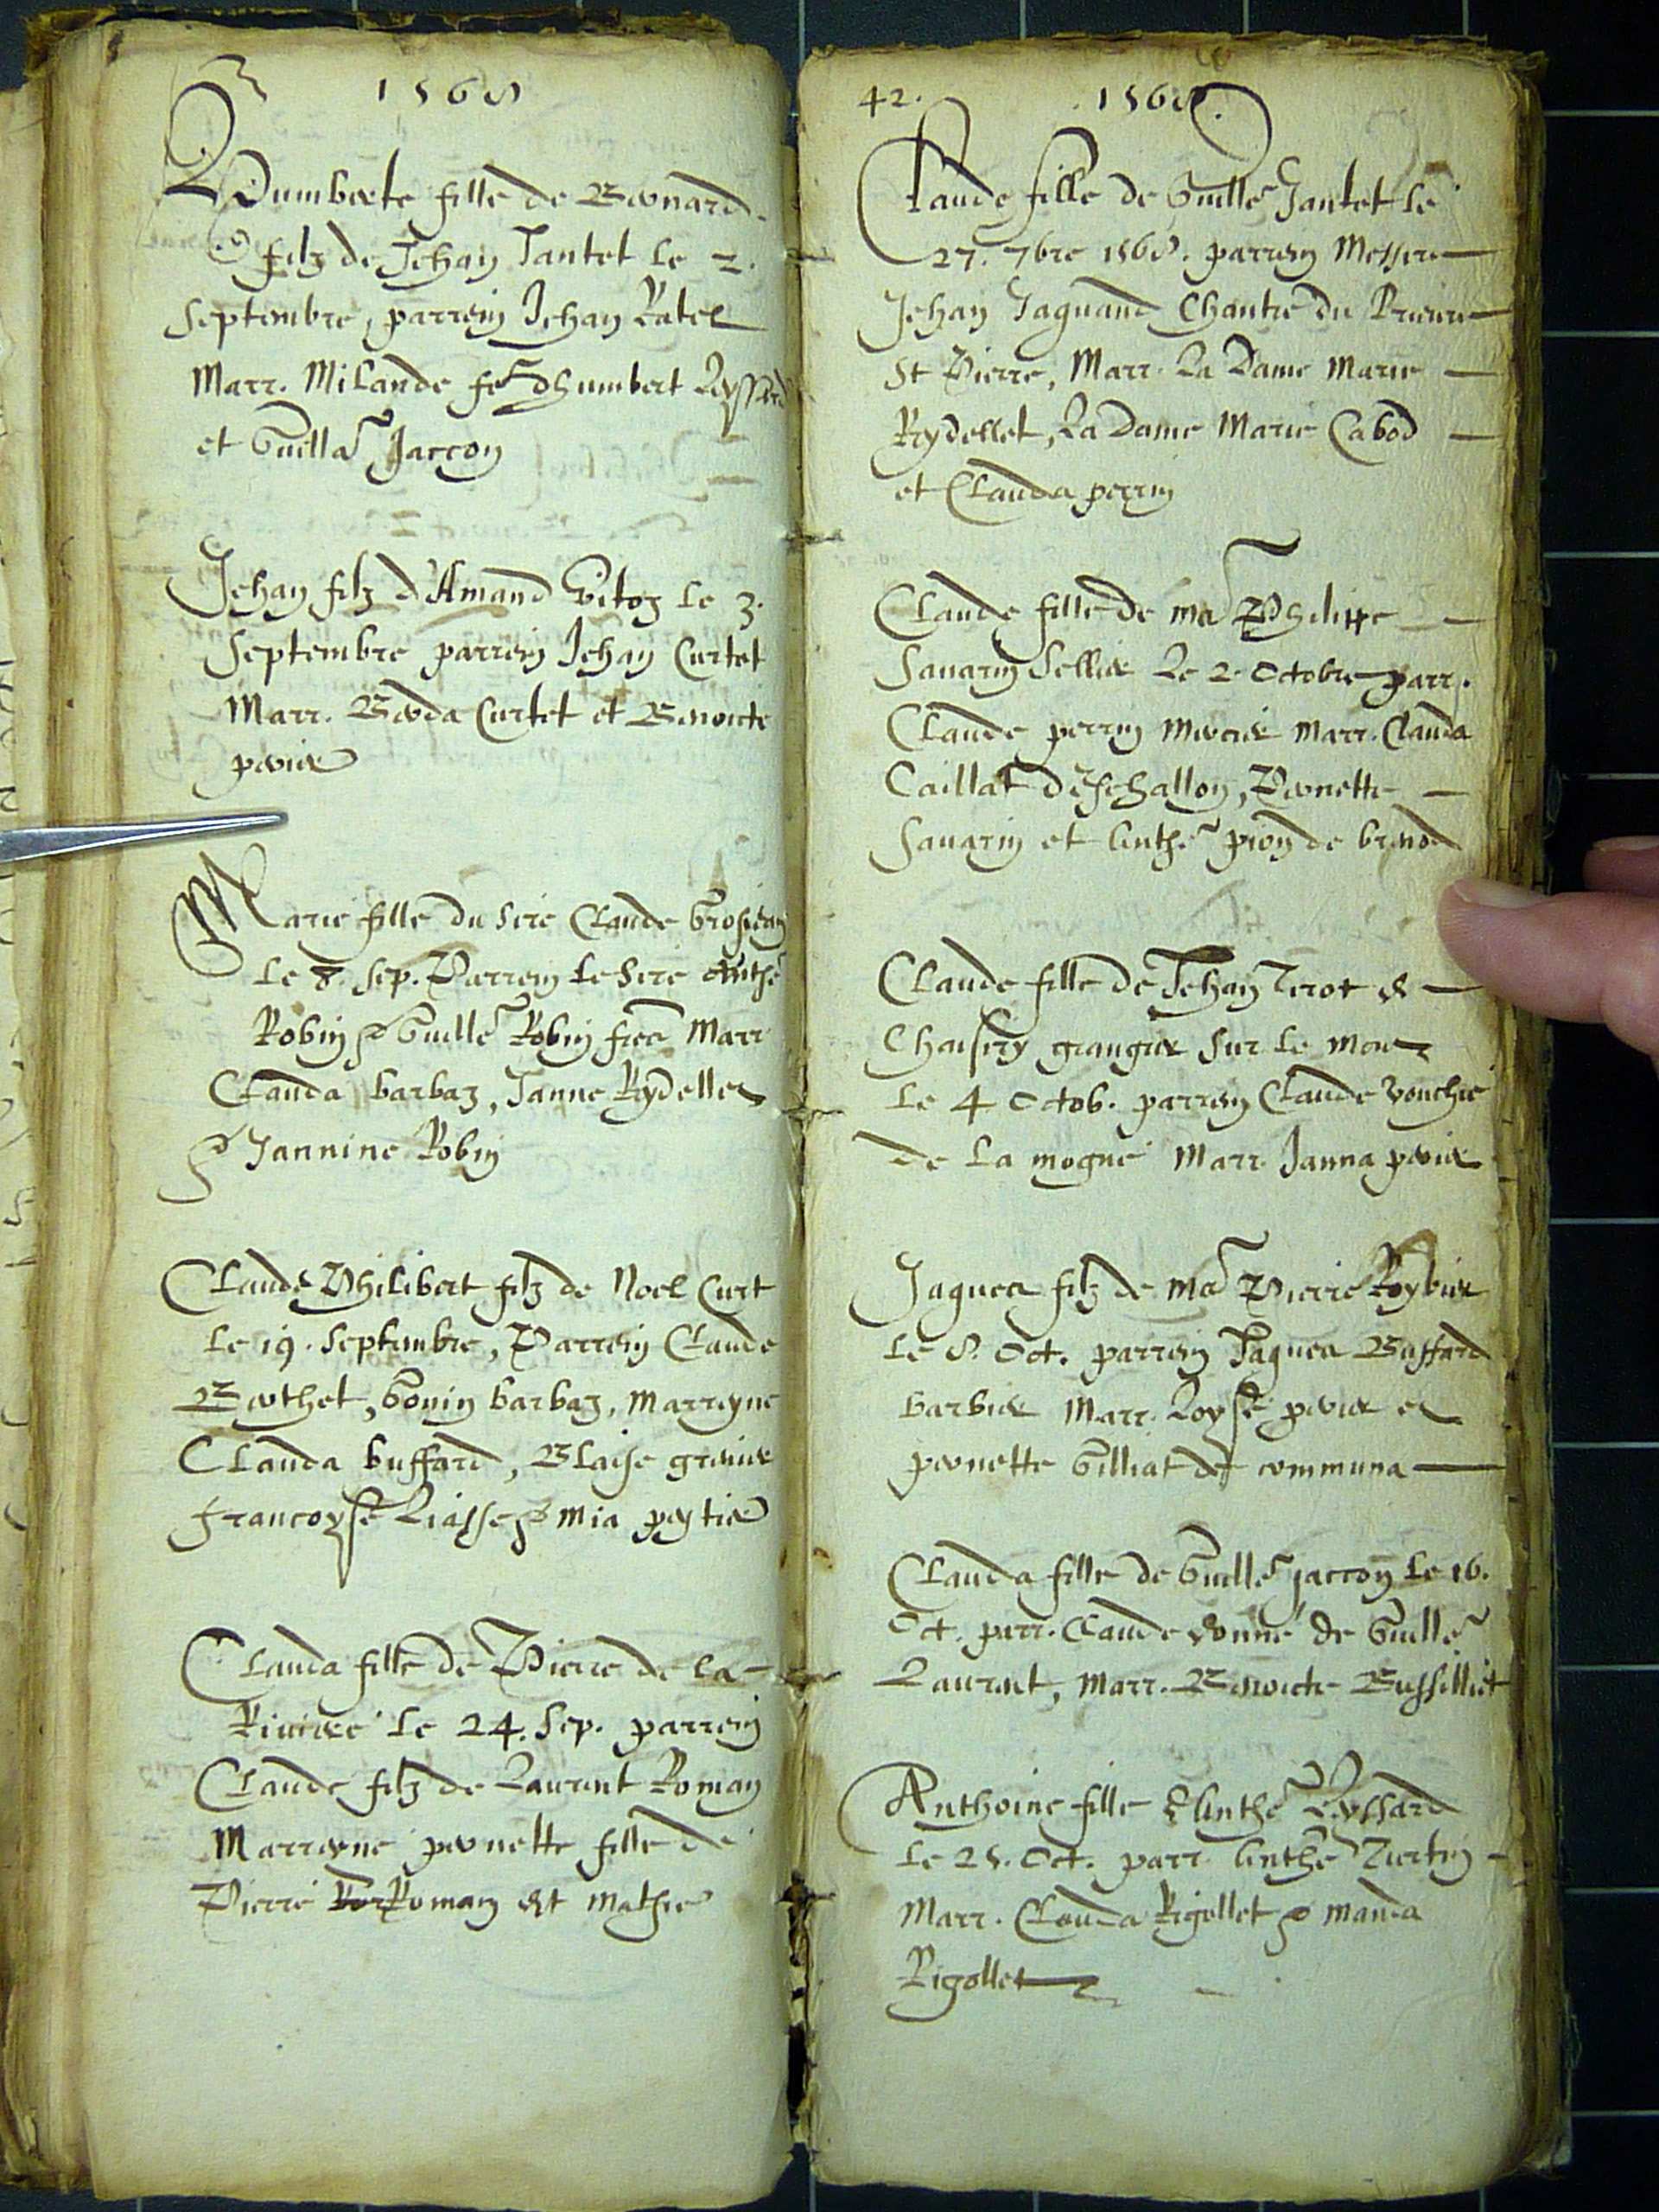 1568
Humberte fille de Bernard
filz de Jehan Tantet le 2.
Septembre, parrein Jehan Ratel
Marr. Milande fe dhumbert Leyssard
et Guilla Jaccon
Jehan filz d'Amand Vitoz le 3.
Septembre parrein Jehan Curtet
Marr. Berda Curtet et Benoicte
perier
Marie fille du Sire Claude Grosjean
le 8. Sep. Parrein le Sire Anthe
Robin & Guille Robin frere Marr
Clauda barbaz, Janne Rydellet
& Jannine Robin
Claude Philibert filz de Noel Curt
le 19. Septembre, Parrein Claude
Berthet, Gonin barbaz, Marreyne
Clauda buffard, Blaise grenier
Francoyse Liasse & Mia peytier
Clauda fille de Pierre de la
Riviere le 24. Sep. parrein
Claude filz de Laurent Roman
Marreyne pernette fille de
Pierre Roman et Mathie
42. 1568.
Claude fille de Guille Jantet le
27. 7bre 1568. parrein Messire
Jehan Jaquand Chantre du Prieure
St Pierre, Marr. La Dame Marie
Rydellet, La Dame Marie Cabod
et Clauda perrin
Claude fille de ma Philippe
Savarin Sellier le 2. Octobre parr.
Claude perrin mercier marr. Clauda
Caillat d'Eschallon, Pernette
Savarin et Anthe pron de brenod
Claude fille de Jehan Terot de
Choisery grangier sur le mont
le 4 Octob. parrein Claude Vouchie
de la mogne Marr. Janna perier
Jaques filz de ma Pierre Roybier
le 8. Oct. parrein Jaques Buffard
barbier Marr. Loyse perier et
pernette Gilliat de communa
Clauda fille de Guille Jaccon le 16.
Oct. parr. Claude donne de Guille
Laurent, Marr. Benoicte Bussilliet
Anthoine fille d'Anthe Leyssard
le 25. Oct. parr. Anthe Turtin
Marr. Clauda Rigollet & manda
Rigollet